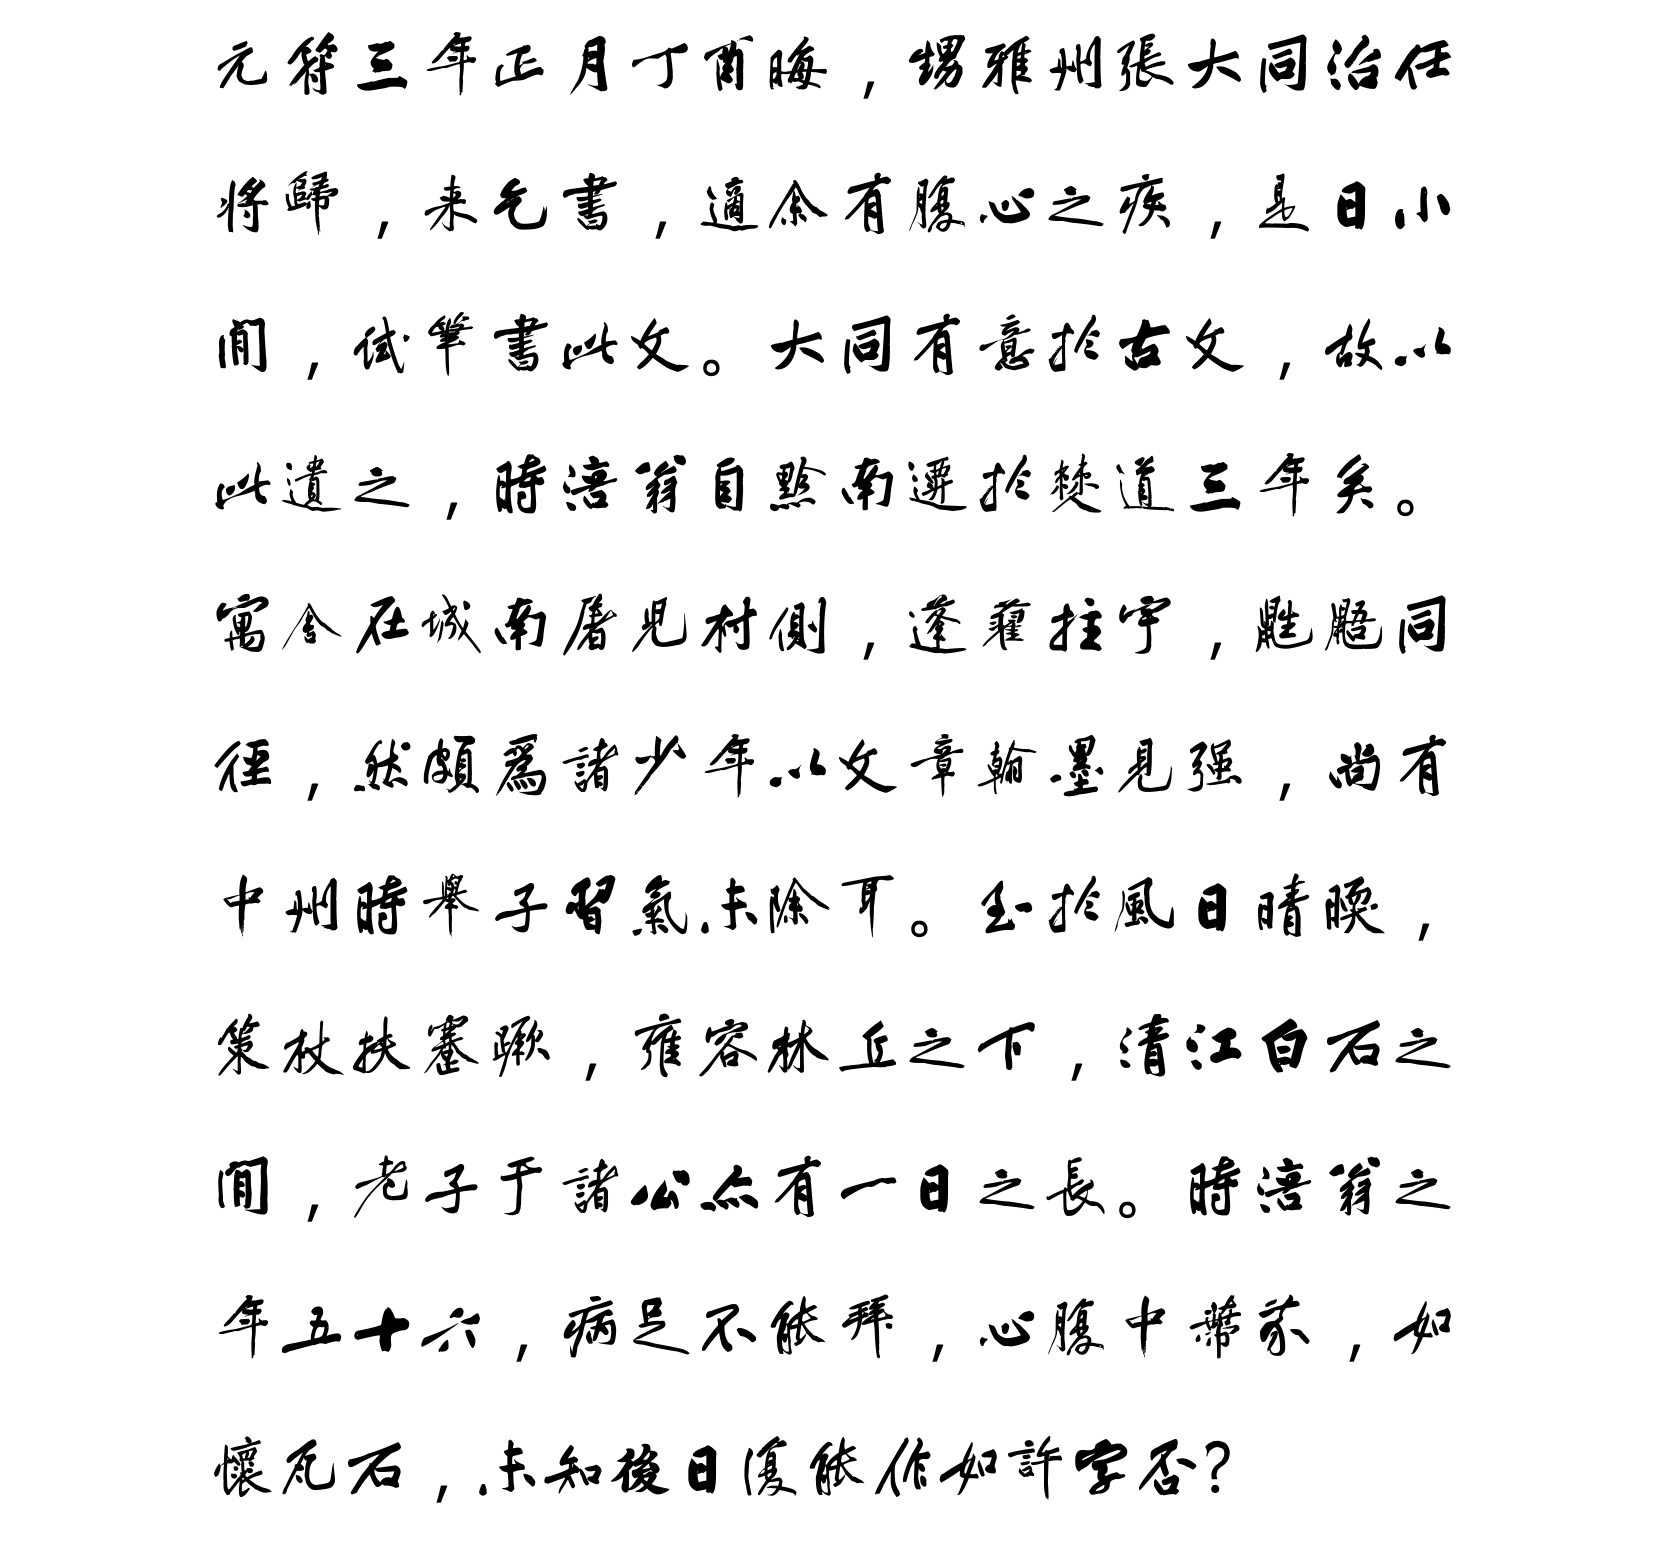 元符三年正月丁酉晦，甥雅州張大同治任
將歸，来乞書，適余有腹心之疾，是日小
閒，試筆書此文。大同有意於古文，故以
此遺之，時涪翁自黔南遷於僰道三年矣。
寓舍在城南屠児村側，蓬藋拄宇，鼪鼯同
徑，然頗爲諸少年以文章翰墨見强，尚有
中州時舉子習氣未除耳。至於風日晴暖，
策杖扶蹇蹶，雍容林丘之下，清江白石之
閒，老子于諸公亦有一日之長。時涪翁之
年五十六，病足不能拜，心腹中蔕芥，如
懷瓦石，未知後日復能作如許字否？